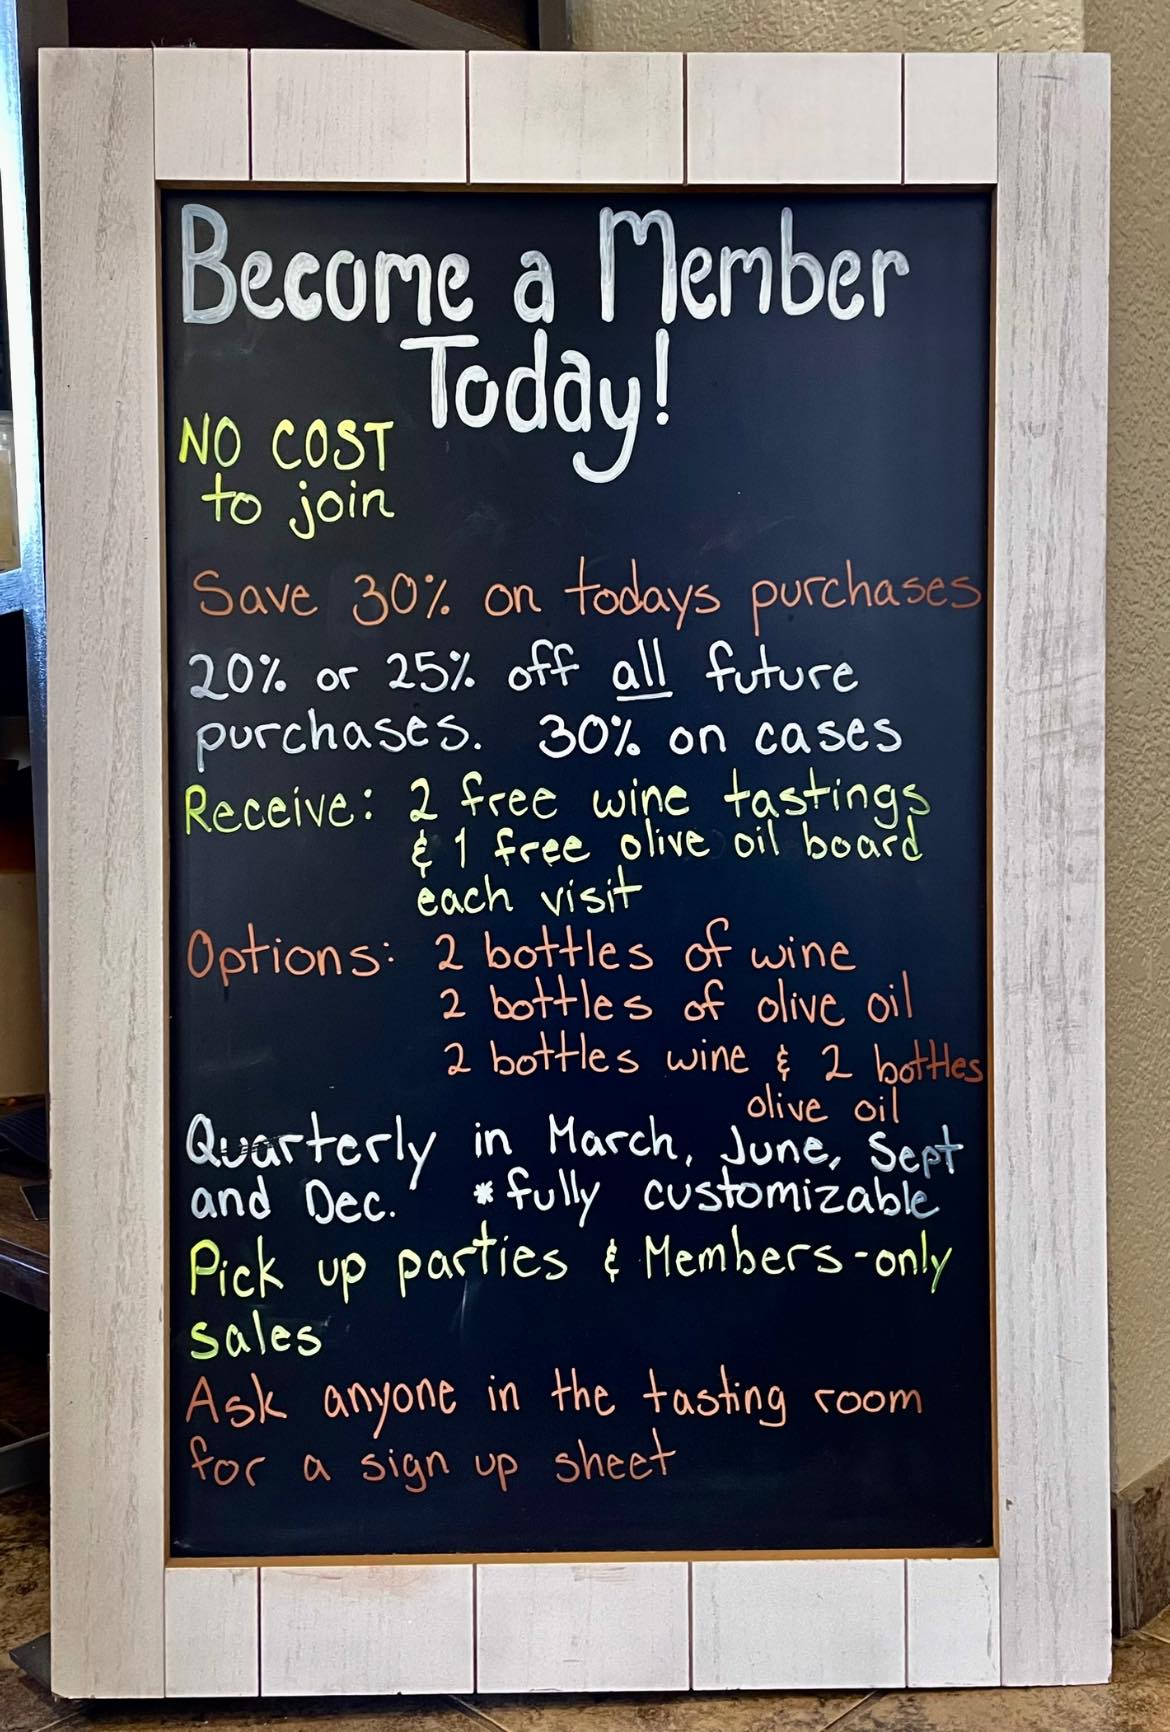 Become a Member
Today!
NO COST
to join
Save 30% on todays purchases
20% or 25% off all future
purchases. 30% on cases
Receive: 2 free wine tastings
& 1 free olive oil board
each visit
Options: 2 bottles of wine
2 bottles of olive oil
2 bottles wine & 2 bottles
olive oil
Quarterly in March, June, Sept
and Dec. *fully customizable
Pick up parties & Members-only
sales
Ask anyone in the tasting room
for a sign up sheet